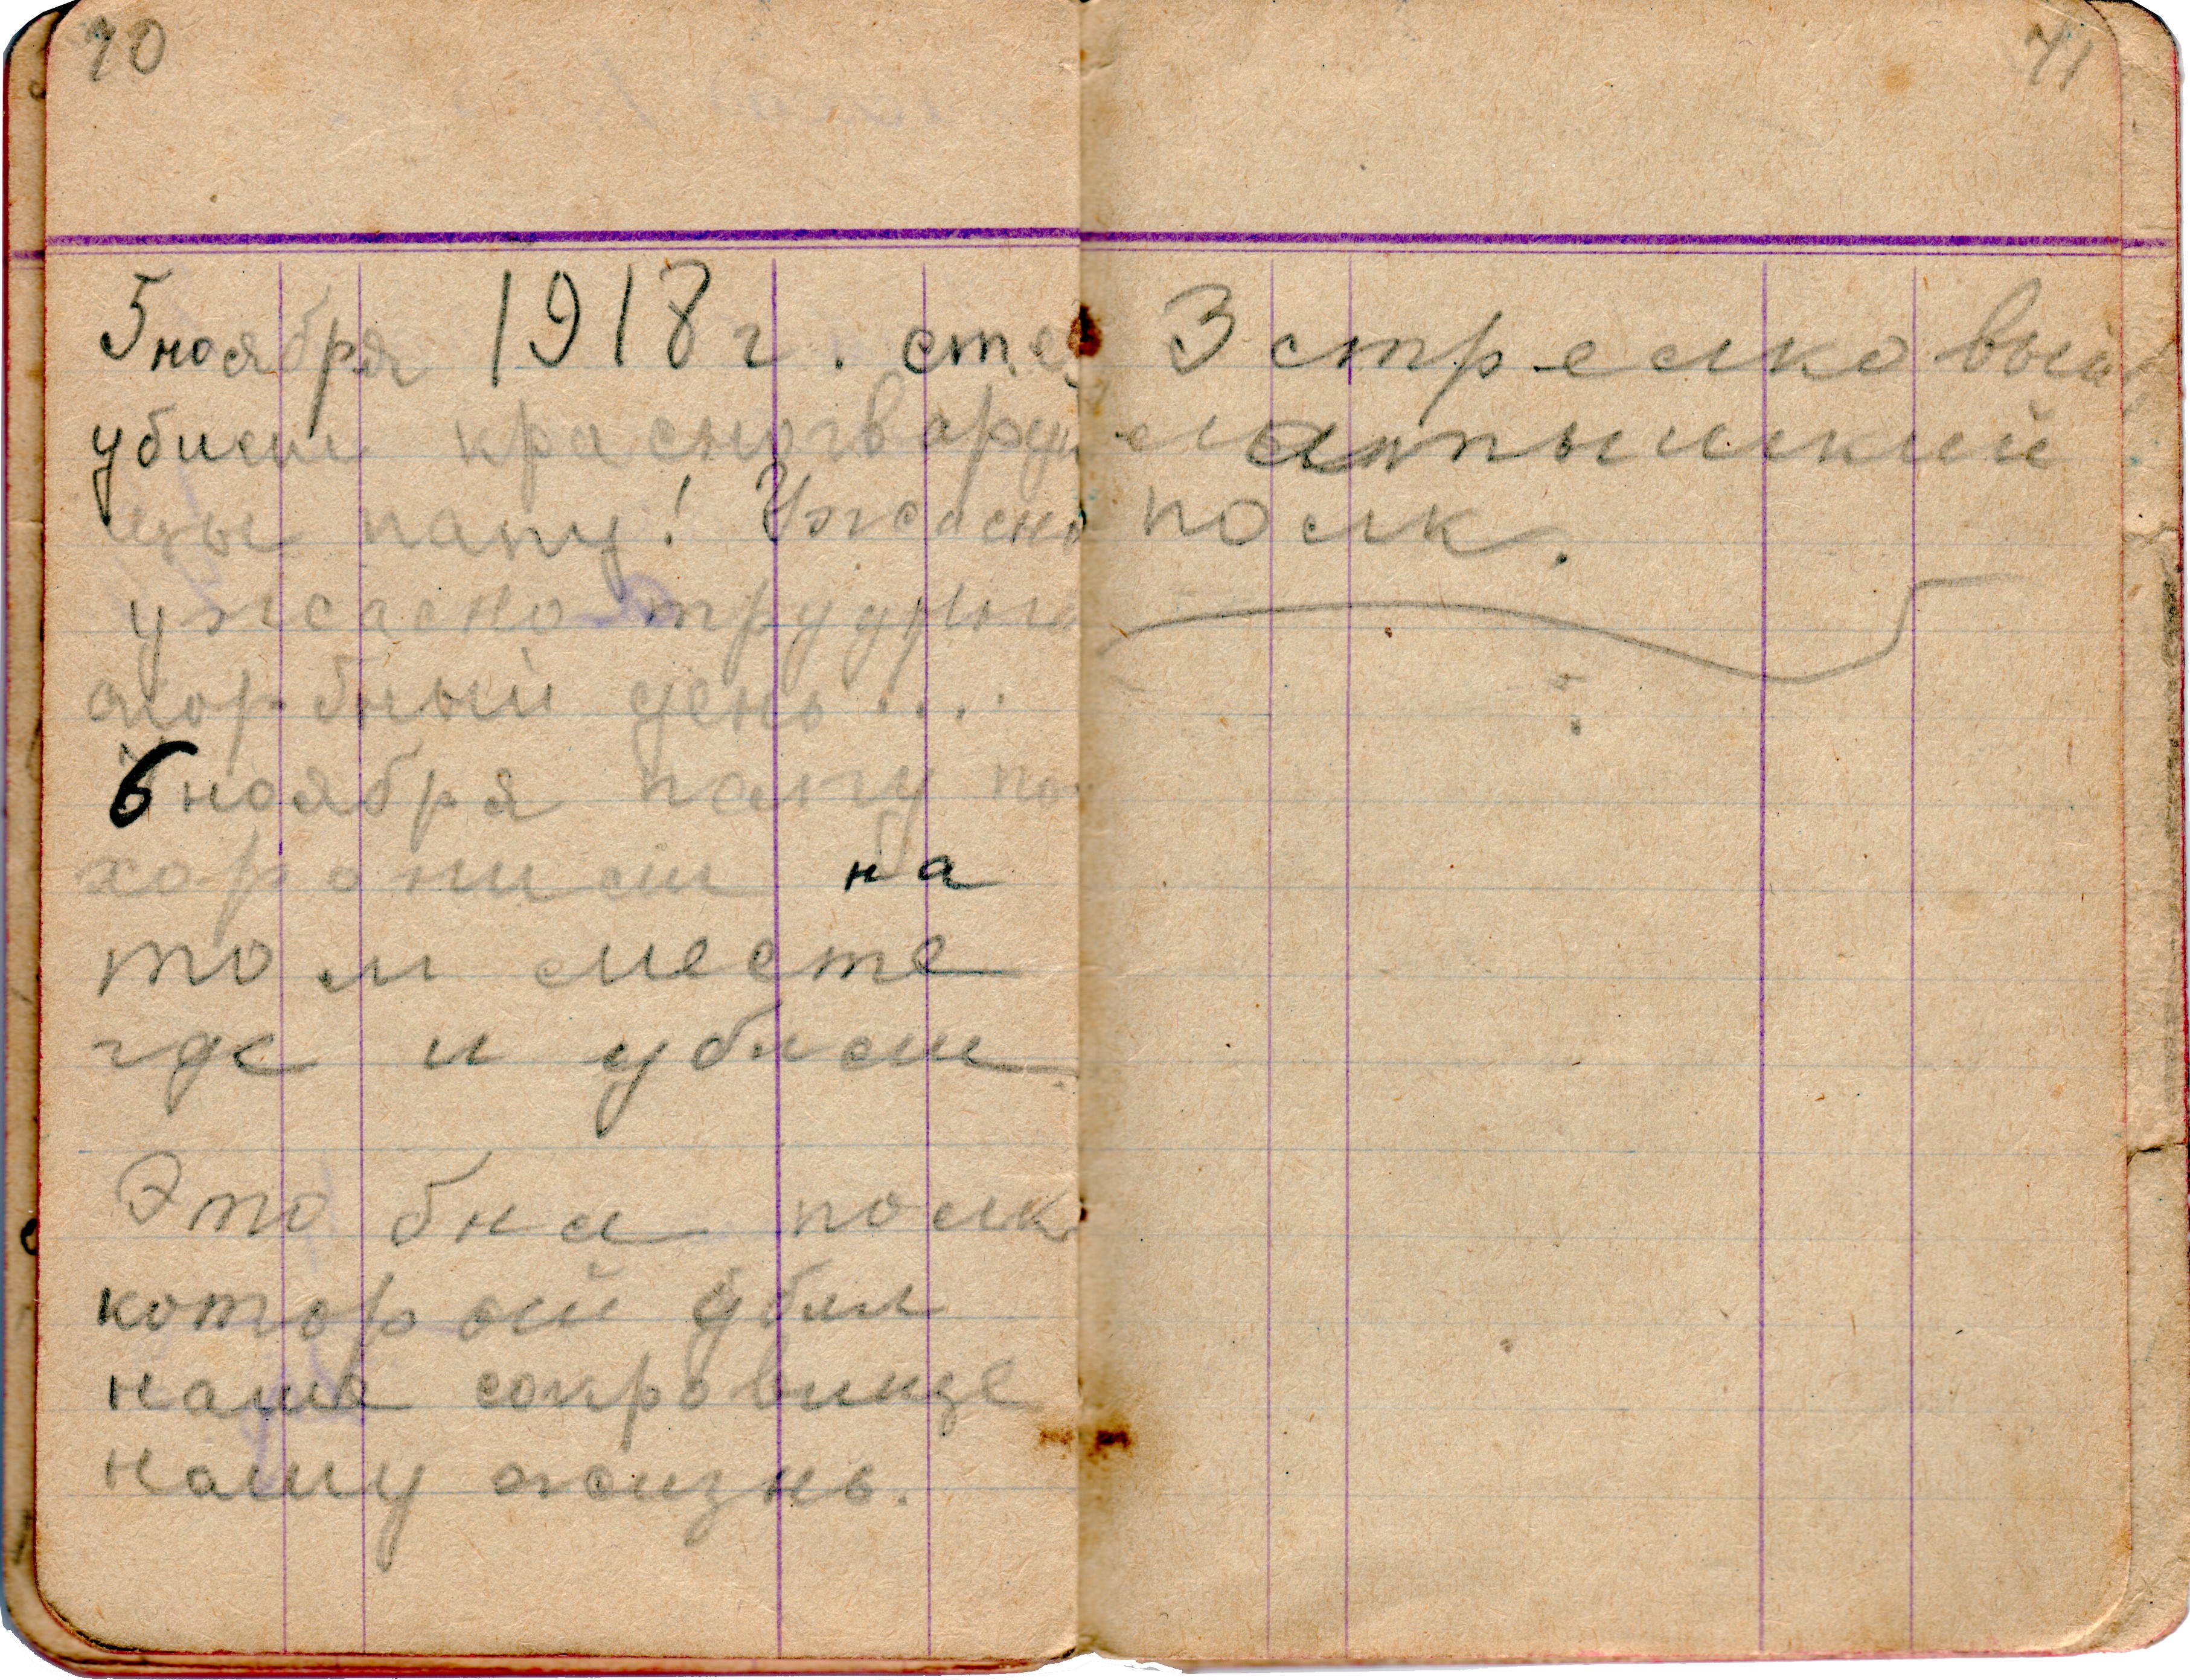 70
5 ноября 1918 г. ст.
убили красногварде
йцы папу! Ужасно
ужасно трудный
скорбный день....
6 ноября папу по
хоронили на
том месте
где и убили
Это был полк
который убил
наше сокровище
нашу жизнь.
71
3 стрелковый
латышский
полк.